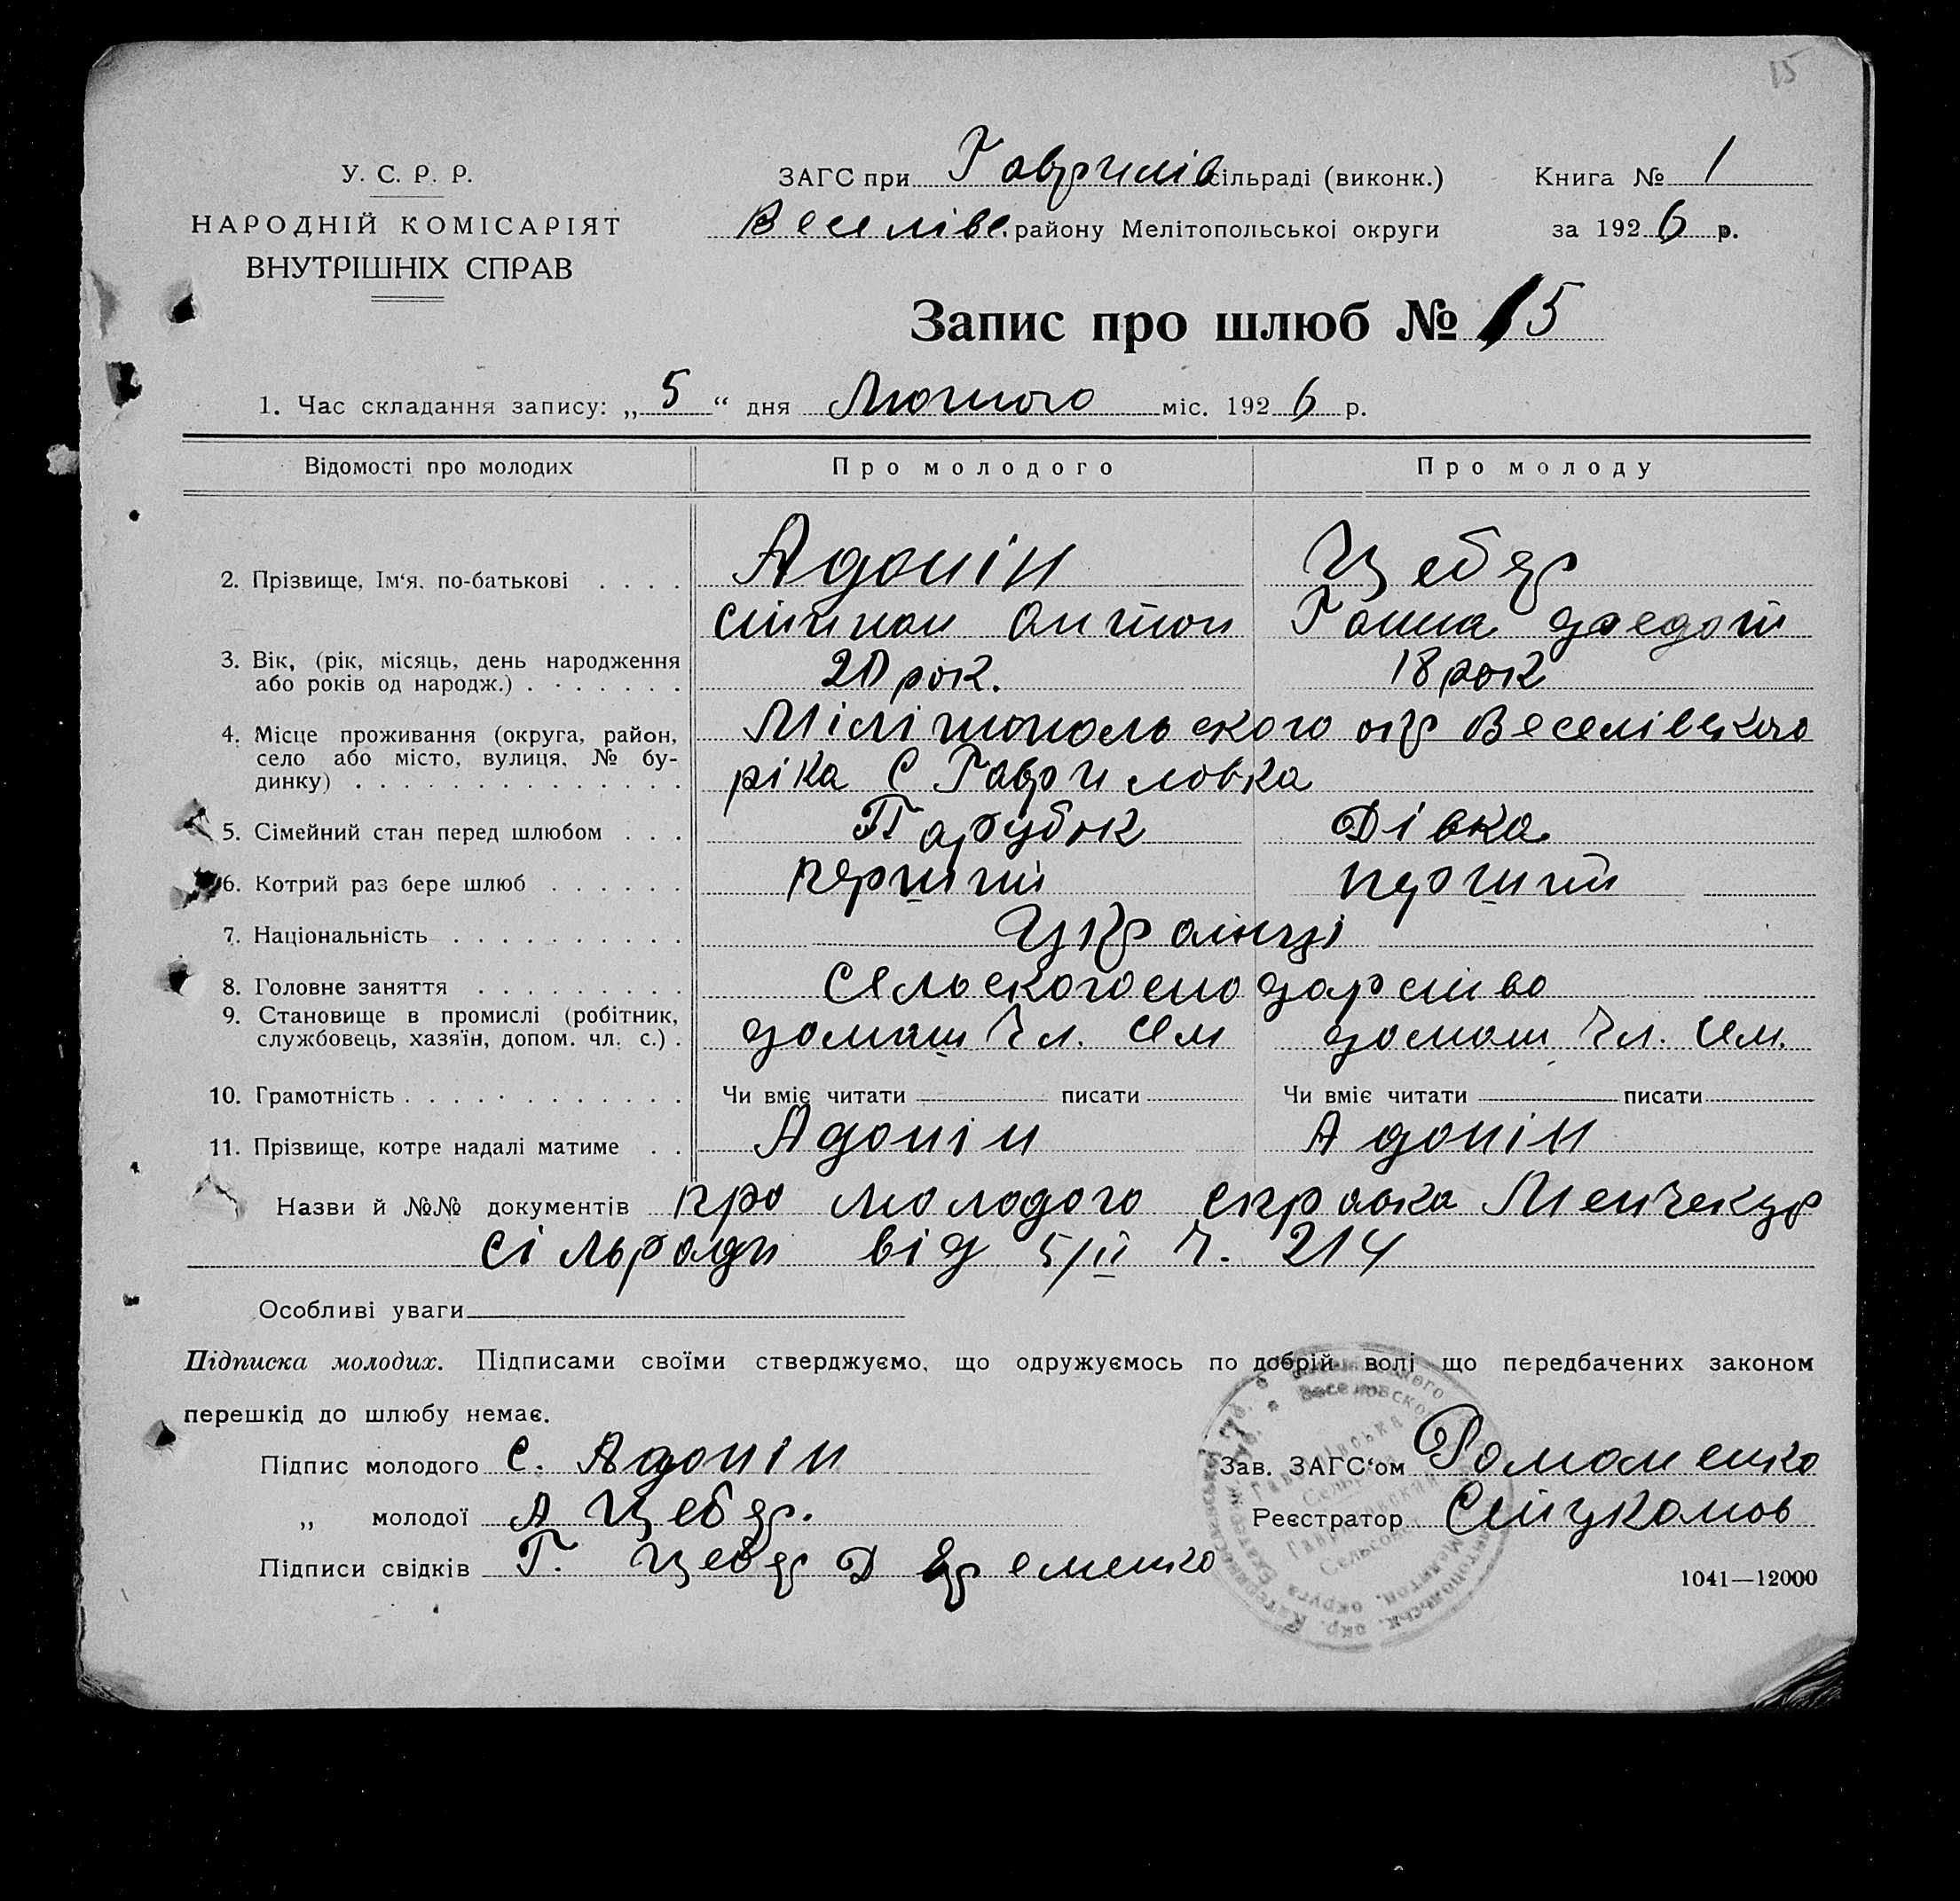 15
У. С. Р. Р.
НАРОДНІЙ КОМІСАРІЯТ
ВНУТРІШНІХ СПРАВ
ЗАГС при Гаврилів сільраді (виконк.)
Веселівс. району Мелітопольської округи
Книга № 1
за 1926 р.
Запис про шлюб № 15
1. Час складання запису: „5“ дня Лютого міс. 1926 р.
Відомості про молодих Про молодого Про молоду
2. Прізвище, Ім‘я, по-батькові . . . . Адонін Цебер
Антон Ганна
3. Вік, (рік, місяць, день народження
або років од народж.) . . . . . . . рок. 18 рок
4. Місце проживання (округа, район, Мілітопольского окр Веселівского
село або місто, вулиця, № бу-
динку) . . . . . . . . . . . . . . . ріка С Гавриловка
5. Сімейний стан перед шлюбом . . . Парубок Дівка
6. Котрий раз бере шлюб . . . . . . перший перший
7. Національність . . . . . . . . . . Українці
8. Головне заняття . . . . . . . . . Сельскогосподарство
9. Становище в промислі (робітник,
службовець, хазяїн, допом. чл. с.) . домаш Чл. Сем домаш Чл. Сем.
10. Грамотність . . . . . . . . . . . . Чи вміє читати писати Чи вміє читати писати
11. Прізвище, котре надалі матиме . . Адонін Адонін
Назви й №№ документів про молодого справка Менчекур
сільради від 5/II Ч. 214
Особливі уваги
Підписка молодих. Підписами своїми стверджуємо, що одружуємось по добрій волі що передбачених законом
перешкід до шлюбу немає.
Підпис молодого С. Адонін
„ молодої А Цебер.
Підписи свідків Г. Цебер Д Єременко
Зав. ЗАГС‘ом Романенко
Реєстратор
1041—12000